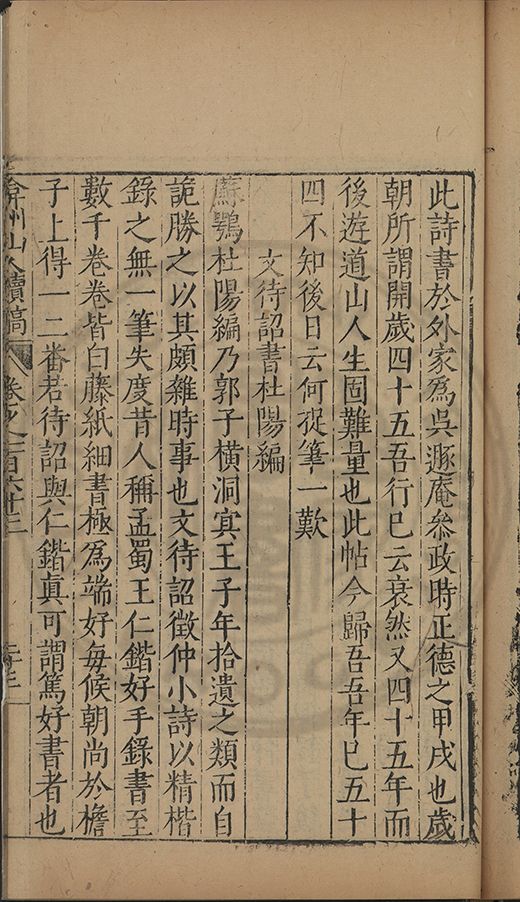 此詩書於外家為吳遯庵叅政時正德之甲戌也歲
朝所謂開歲四十五吾行已云衰然又四十五年而
後遊道山人生固難量也此帖今歸吾吾年已五十
四不知後日云何捉筆一歎
文待詔書杜陽編
蘇鶚杜陽編乃郭子橫洞㝠王子年拾遺之類而自
詭勝之以其頗雜時事也文待詔徵仲小詩以精楷
錄之無一筆失度昔人稱孟蜀王仁鍇好手錄書至
數千卷卷皆白藤紙細書極為端好每候朝尚於檐
子上得一二番若待詔與仁鍇真可謂篤好書者也
弇州山人續稿 卷之一百六十三 二十三